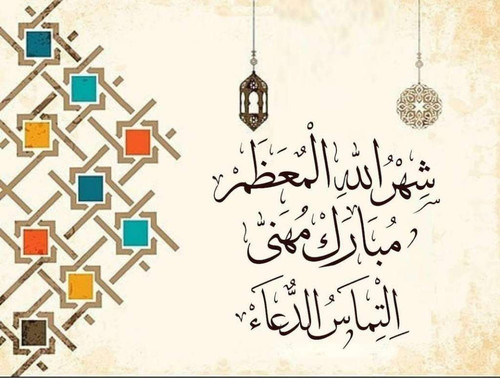 شَهْرُ اللهِ الْمُعَظَمْ
مُبَارَكْ مُهَنىٰ
اِلتِمَاسُ الدُّعَاءَ